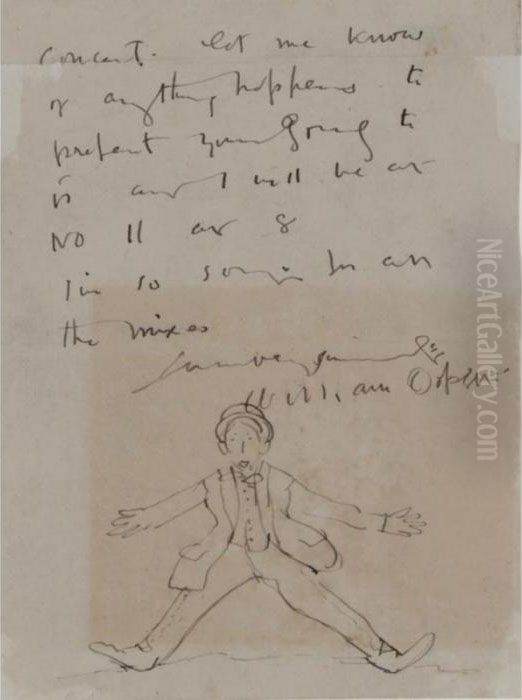 Concert. let me know
if anything happens to
prefent your going to
is and I will be at
NO 11 at 8
I'm so sorry for all
the mixes
William Orpen
NiceArtGallery.com